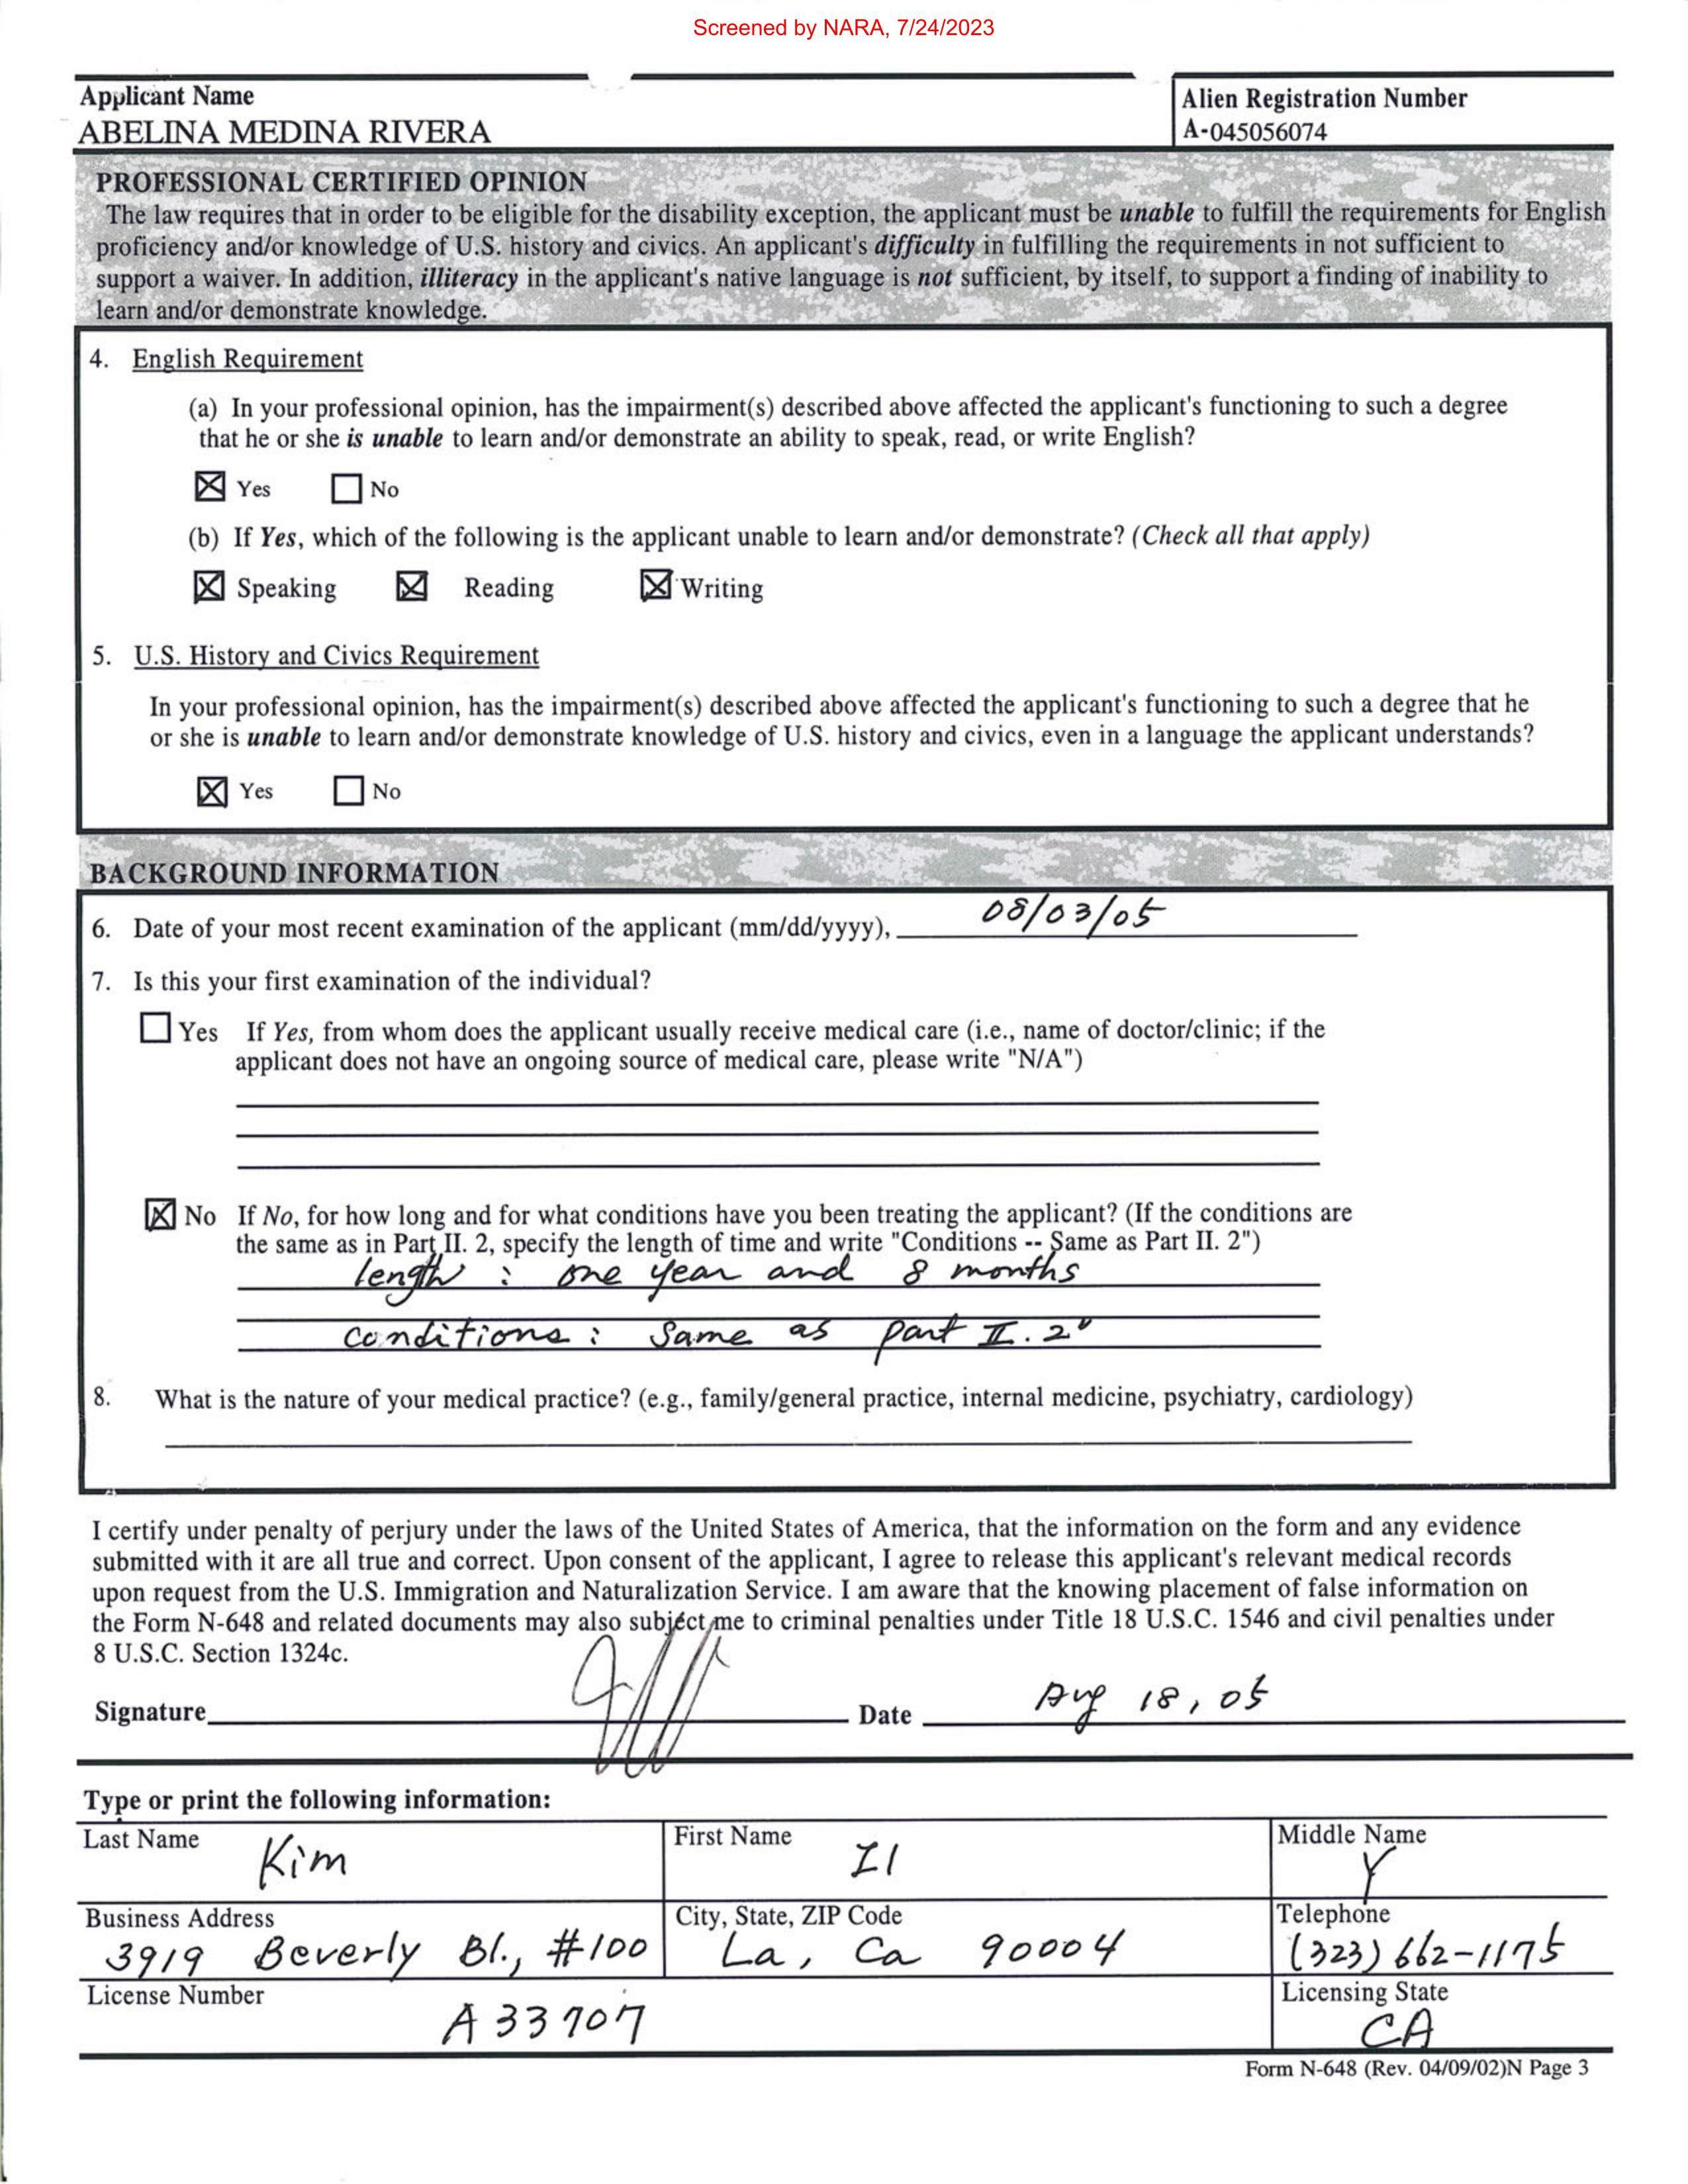 Screened by NARA, 7/24/2023
Applicant Name
ABELINA MEDINA RIVERA
Alien Registration Number
A-045056074
PROFESSIONAL CERTIFIED OPINION
The law requires that in order to be eligible for the disability exception, the applicant must be unable to fulfill the requirements for English
proficiency and/or knowledge of U.S. history and civics. An applicant's difficulty in fulfilling the requirements in not sufficient to
support a waiver. In addition, illiteracy in the applicant's native language is not sufficient, by itself, to support a finding of inability to
learn and/or demonstrate knowledge.
4. English Requirement
(a) In your professional opinion, has the impairment(s) described above affected the applicant's functioning to such a degree
that he or she is unable to learn and/or demonstrate an ability to speak, read, or write English?
Yes No
(b) If Yes, which of the following is the applicant unable to learn and/or demonstrate? (Check all that apply)
Speaking Reading Writing
5. U.S. History and Civics Requirement
In your professional opinion, has the impairment(s) described above affected the applicant's functioning to such a degree that he
or she is unable to learn and/or demonstrate knowledge of U.S. history and civics, even in a language the applicant understands?
Yes No
BACKGROUND INFORMATION
6. Date of your most recent examination of the applicant (mm/dd/yyyy), 08/03/05
7. Is this your first examination of the individual?
Yes If Yes, from whom does the applicant usually receive medical care (i.e., name of doctor/clinic; if the
applicant does not have an ongoing source of medical care, please write "N/A")
No If No, for how long and for what conditions have you been treating the applicant? (If the conditions are
the same as in Part II. 2, specify the length of time and write "Conditions -- Same as Part II. 2")
length : one year and 8 months
conditions : Same as part II. 2"
8. What is the nature of your medical practice? (e.g., family/general practice, internal medicine, psychiatry, cardiology)
I certify under penalty of perjury under the laws of the United States of America, that the information on the form and any evidence
submitted with it are all true and correct. Upon consent of the applicant, I agree to release this applicant's relevant medical records
upon request from the U.S. Immigration and Naturalization Service. I am aware that the knowing placement of false information on
the Form N-648 and related documents may also subject me to criminal penalties under Title 18 U.S.C. 1546 and civil penalties under
8 U.S.C. Section 1324c.
Signature Date Aug 18, 05
Type or print the following information:
Last Name First Name Middle Name
Kim Il Y
Business Address City, State, ZIP Code Telephone
3919 Beverly Bl., #100 La, Ca 90004 (323) 662-1175
License Number Licensing State
A 33707 CA
Form N-648 (Rev. 04/09/02)N Page 3